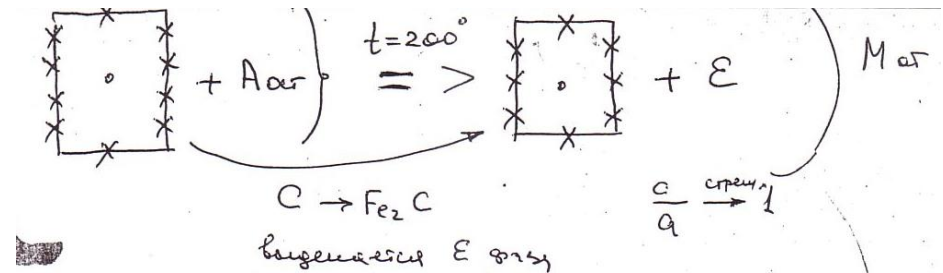 + Аост t=200° => + ε Мот
C → Fe₂C c/a стрем. → 1
выделяется ε фаза